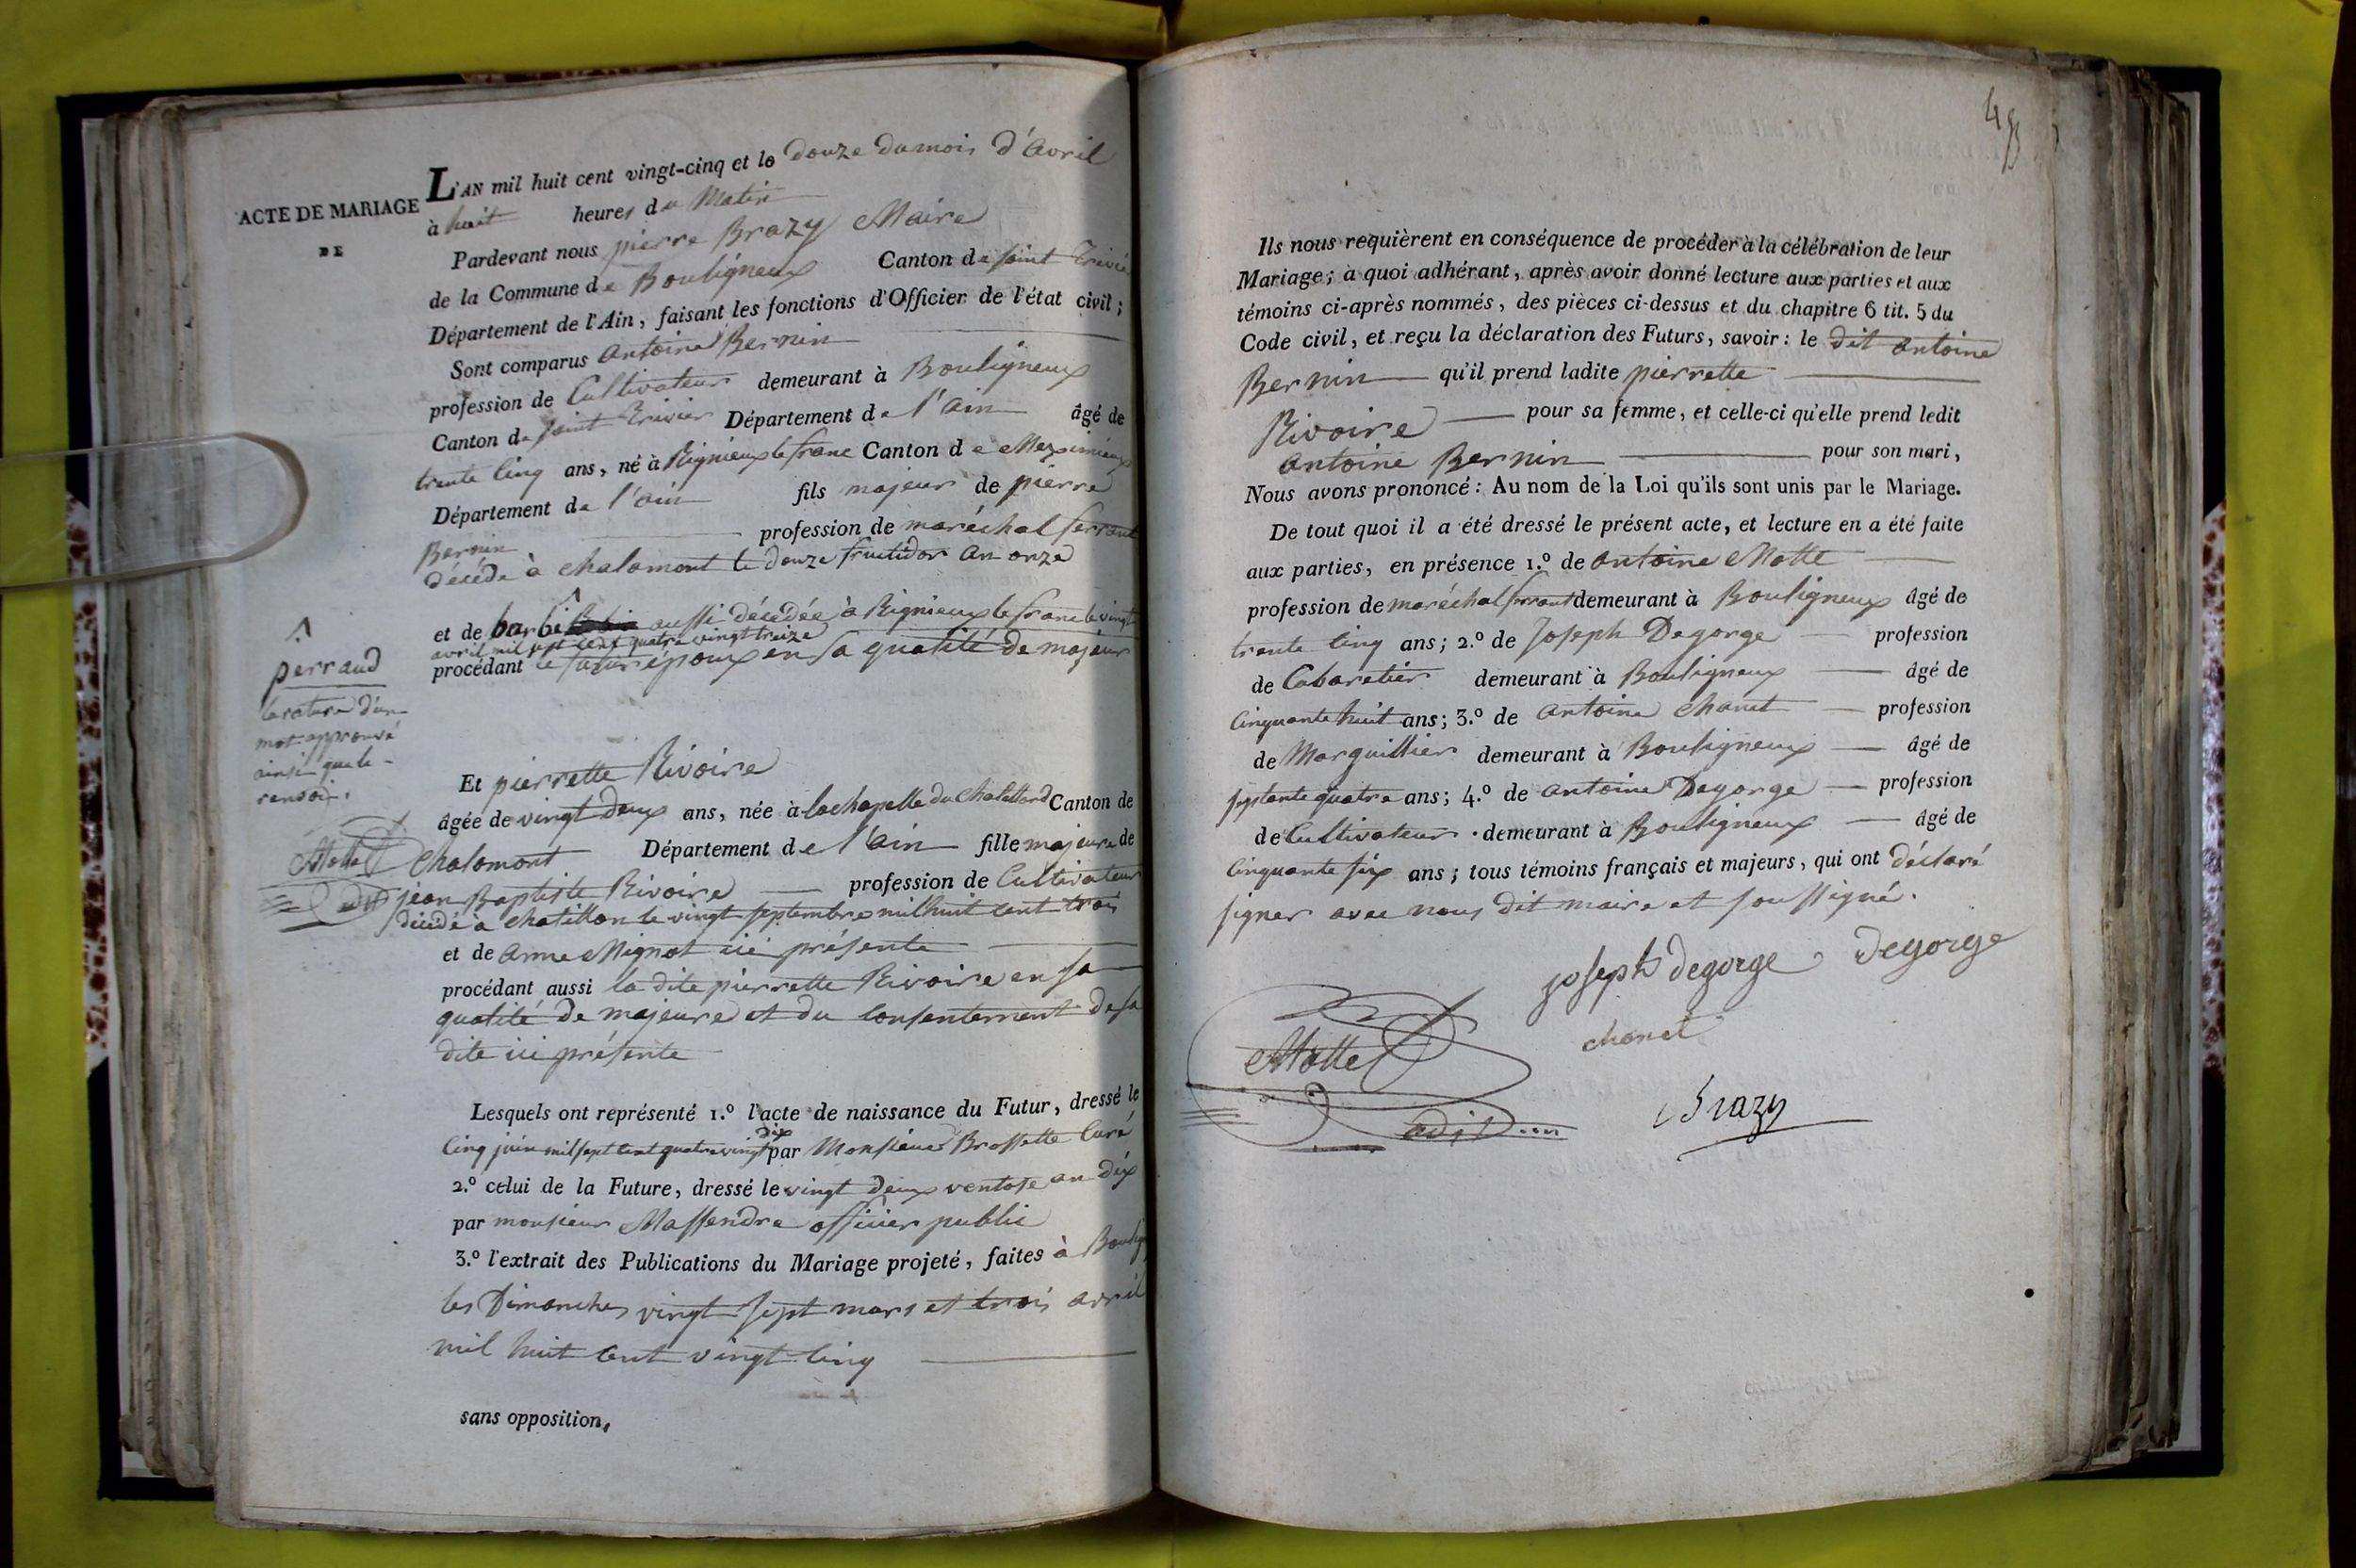 L'AN mil huit cent vingt-cinq et le douze du mois d'avril
ACTE DE MARIAGE
DE
à huit heures du Matin
Pardevant nous pierre Brazy Maire
de la Commune de Bouligneux Canton de saint Trivier
Département de l'Ain, faisant les fonctions d'Officier de l'état civil;
Sont comparus antoine Bernin
profession de Cultivateur demeurant à Bouligneux
Canton de saint Trivier Département de l'ain âgé de
trente cinq ans, né à Rignieux le franc Canton de Meximieux
Département de l'ain fils majeur de pierre
Bernin profession de maréchal ferrant
décédé à chalamont le douze fructidor an onze
et de barbe aussi décédée à Rignieux le franc le vingt
avril mil sept cent quatre vingt treize
procédant le futur époux en sa qualité de majeur
perraud
la rature d'un
mot approuvé
ainsi que le
renvoi.
Motte
adjt
Et pierrette Rivoire
âgée de vingt deux ans, née à la chapelle du chatelard Canton de
chalamont Département de l'ain fille majeure de
jean Baptiste Rivoire profession de Cultivateur
décédé à chatillon le vingt septembre mil huit cent trois
et de anne Mignot ici présente
procédant aussi la dite pierrette Rivoire en sa
qualité de majeure et du consentement de sa
dite ici présente
Lesquels ont représenté 1.º l'acte de naissance du Futur, dressé le
cinq juin mil sept cent quatre vingt dix par Monsieur Brossette Curé
2.º celui de la Future, dressé le vingt deux ventose an dix
par monsieur Massendre officier public
3.º l'extrait des Publications du Mariage projeté, faites à Boulig
les Dimanches vingt sept mars et trois avril
mil huit cent vingt cinq
sans opposition,
Ils nous requièrent en conséquence de procéder à la célébration de leur
Mariage; à quoi adhérant, après avoir donné lecture aux parties et aux
témoins ci-après nommés, des pièces ci-dessus et du chapitre 6 tit. 5 du
Code civil, et reçu la déclaration des Futurs, savoir: le dit antoine
Bernin qu'il prend ladite pierrette
Rivoire pour sa femme, et celle-ci qu'elle prend ledit
antoine Bernin pour son mari,
Nous avons prononcé: Au nom de la Loi qu'ils sont unis par le Mariage.
De tout quoi il a été dressé le présent acte, et lecture en a été faite
aux parties, en présence 1.º de antoine Motte
profession de maréchal ferrant demeurant à Bouligneux âgé de
trente cinq ans; 2.º de Joseph Degorge profession
de Cabaretier demeurant à Bouligneux âgé de
cinquante huit ans; 3.º de antoine chanet profession
de Marguillier demeurant à Bouligneux âgé de
septante quatre ans; 4.º de antoine Degorge profession
de Cultivateur demeurant à Bouligneux âgé de
cinquante six ans; tous témoins français et majeurs, qui ont déclaré
signer avec nous dit maire et soussigné.
joseph degorge Degorge
Motte
chanet
Brazy
adjt